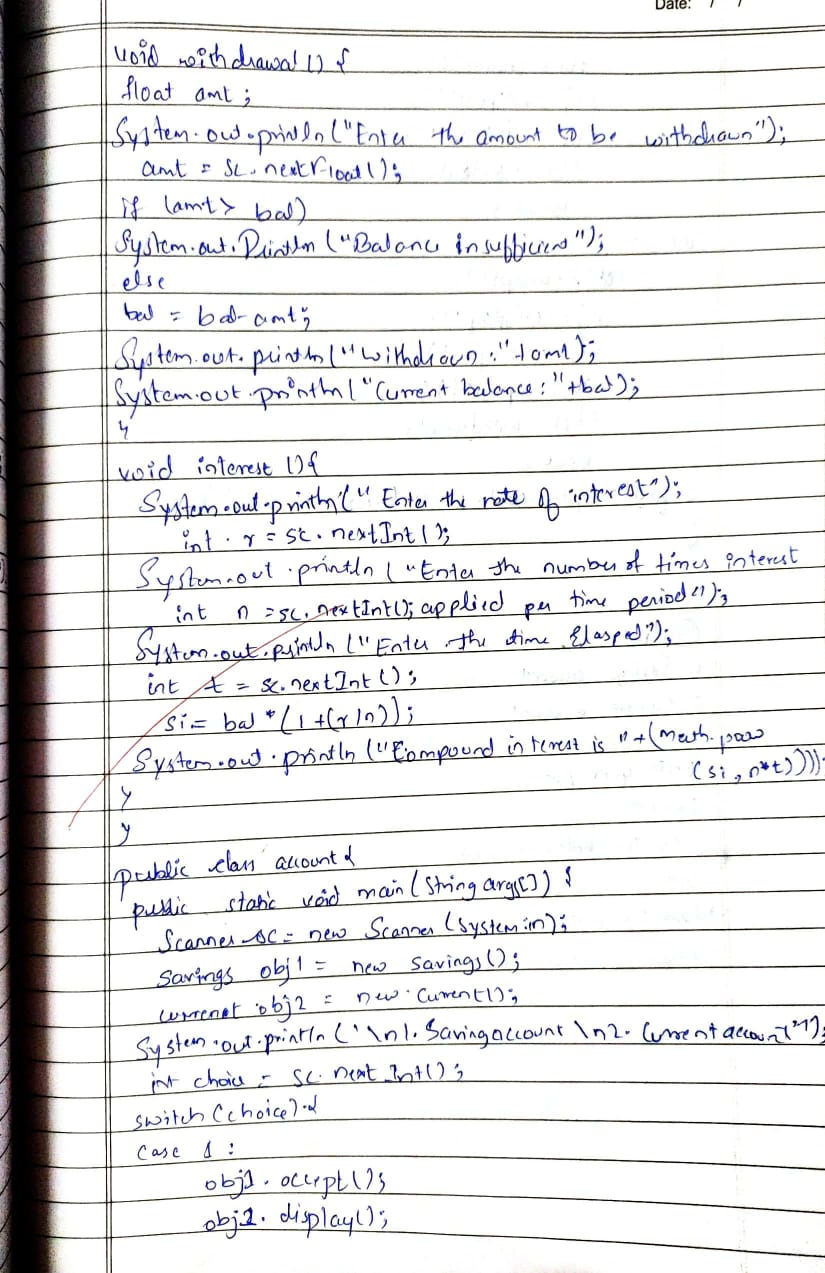 Date: / /
void withdrawal () {
float amt ;
System.out.println ("Enter the amount to be withdrawn");
amt = sc.nextFloat();
if (amt > bal)
System.out.Println ("Balance insufficient");
else
bal = bal-amt;
System.out.println ("withdrawn:"+amt);
System.out.println ("Current balance:"+bal);
}
void interest () {
System.out.println ("Enter the rate of interest");
int r = sc.nextInt();
System.out.println ("Enter the number of times interest
int n = sc.nextInt(); applied per time period");
System.out.println ("Enter the time Elasped");
int t = sc.nextInt();
si = bal * (1+(r/n));
System.out.println ("Compound interest is "+(Math.pow
(si, n*t))));
}
}
public class account {
public static void main (String args[]) {
Scanner sc = new Scanner (System.in);
Savings obj1 = new savings();
currenet obj2 = new Current();
System.out.println ("\n1. Saving account \n2. Current account");
int choice = sc.next Int();
switch (choice) {
case 1 :
obj1.accept();
obj1.display();